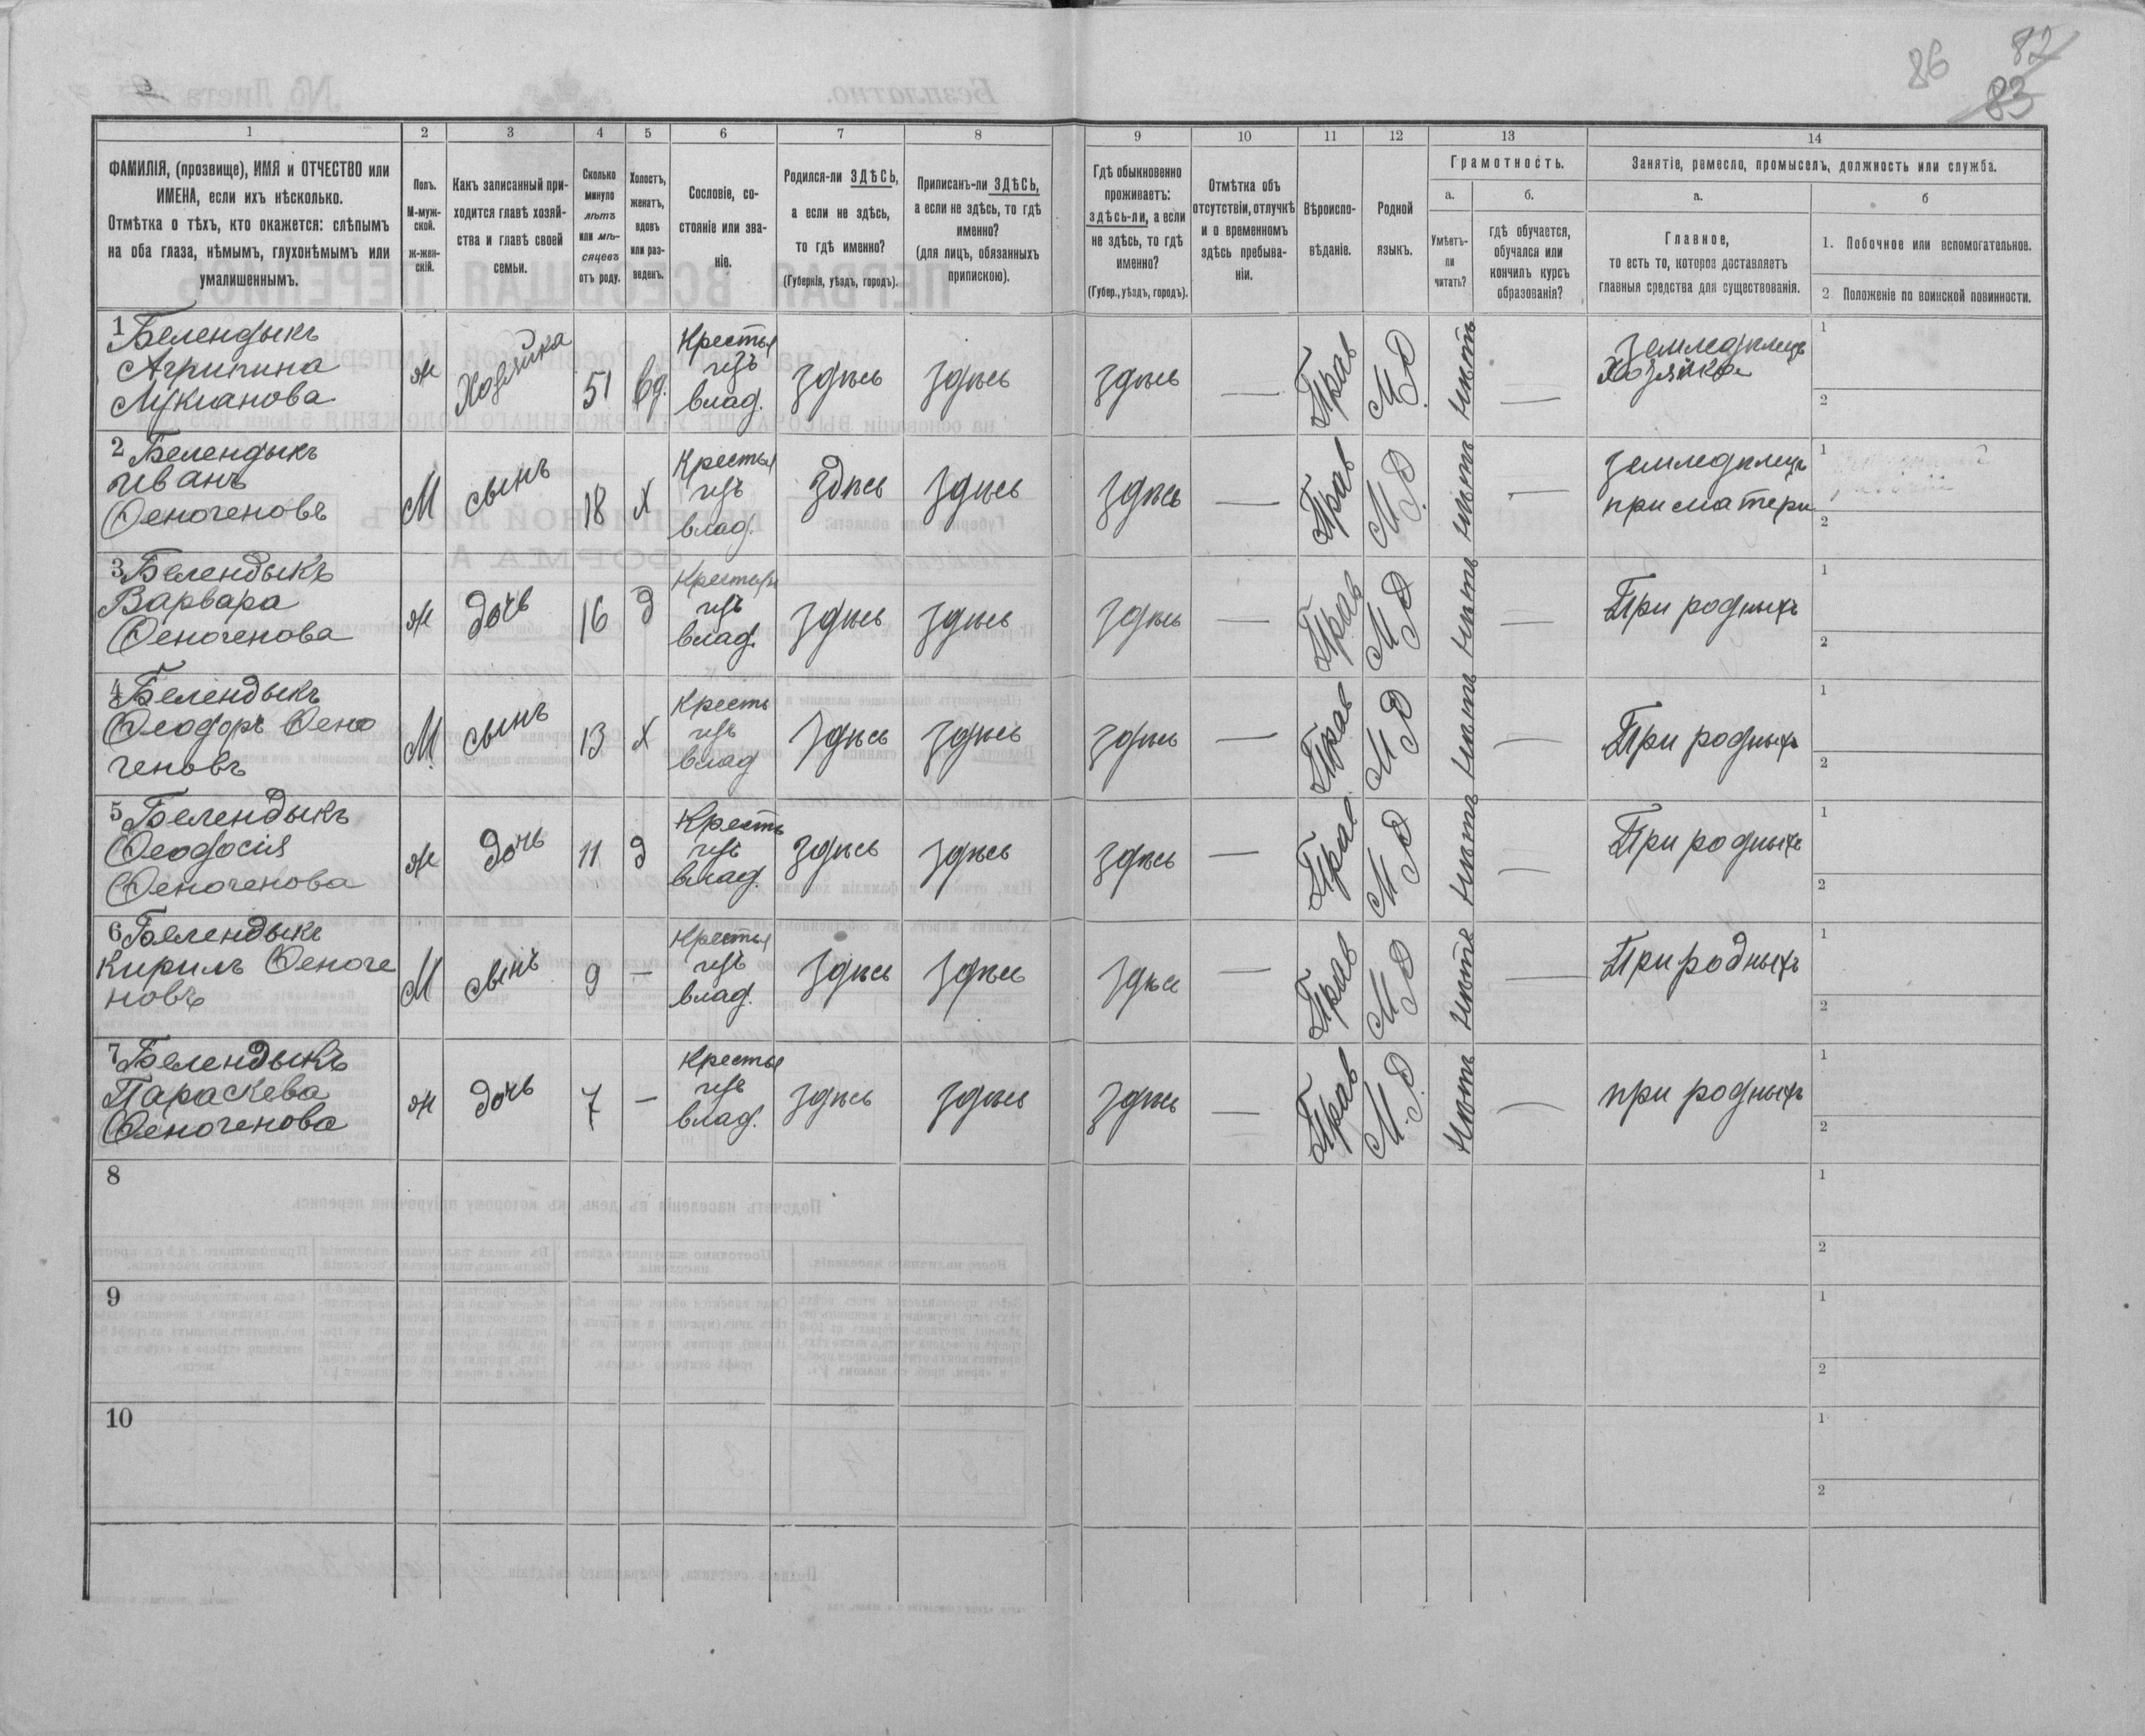 86 82
83
1 2 3 4 5 6 7 8 9 10 11 12 13 14
ФАМИЛІЯ, (прозвище), ИМЯ и ОТЧЕСТВО или
ИМЕНА, если ихъ нѣсколько.
Отмѣтка о тѣхъ, кто окажется: слѣпымъ
на оба глаза, нѣмымъ, глухонѣмымъ или
умалишеннымъ.
Полъ.
М-муж-
ской.
ж-жен-
скій.
Какъ записанный при-
ходится главѣ хозяй-
ства и главѣ своей
семьи.
Сколько
минуло
лѣтъ
или мѣ-
сяцевъ
отъ роду.
Холостъ,
женатъ,
вдовъ
или раз-
веденъ.
Сословіе, со-
стояніе или зва-
ніе.
Родился-ли ЗДѢСЬ,
а если не здѣсь,
то гдѣ именно?
(Губернія, уѣздъ, городъ).
Приписанъ-ли ЗДѢСЬ,
а если не здѣсь, то гдѣ
именно?
(для лицъ, обязанныхъ
припискою).
Гдѣ обыкновенно
проживаетъ:
здѣсь-ли, а если
не здѣсь, то гдѣ
именно?
(Губер., уѣздъ, городъ).
Отмѣтка объ
отсутствіи, отлучкѣ
и о временномъ
здѣсь пребыва-
ніи.
Вѣроиспо-
вѣданіе.
Родной
языкъ.
Грамотность.
а.
Умѣетъ-
ли
читать?
б.
гдѣ обучается,
обучался или
кончилъ курсъ
образованія?
Занятіе, ремесло, промыселъ, должность или служба.
а.
Главное,
то есть то, которое доставляетъ
главныя средства для существованія.
б
1. Побочное или вспомогательное.
2 Положеніе по воинской повинности.
1 Белендыкъ
Агрипина
Лукіанова
ж
Хозяйка
51
вд.
Крестья
изъ
влад.
здѣсь
здѣсь
здѣсь
—
Прав
М.Р.
Нѣтъ
—
земледѣлецъ
Хозяйка
1
2
2 Белендыкъ
Иванъ
Ѳеногеновъ
М
сынъ
18
х
Крестья
изъ
влад.
здѣсь
здѣсь
здѣсь
—
Прав
М.Р
Нѣтъ
—
земледѣлецъ
при матери
1
2
3 Белендыкъ
Варвара
Ѳеногенова
ж
дочь
16
д
Крестья
изъ
влад.
здѣсь
здѣсь
здѣсь
—
Прав
М Р
Нѣтъ
—
При родныхъ
1
2
4 Белендыкъ
Ѳеодоръ Ѳено
геновъ
М
сынъ
13
х
Кресть
изъ
влад
здѣсь
здѣсь
здѣсь
—
Прав
М Р
Нѣтъ
—
При родныхъ
1
2
5 Белендыкъ
Ѳеодосія
Ѳеногенова
ж
дочь
11
д
Кресть
изъ
влад.
здѣсь
здѣсь
здѣсь
—
Прав
М Р
Нѣтъ
—
При родныхъ
1
2
6 Белендыкъ
Кирилъ Ѳеноге
новъ
М
сынъ
9
—
Крестья
изъ
влад.
здѣсь
здѣсь
здѣсь
—
Прав
М Р
Нѣтъ
—
При родныхъ
1
2
7 Белендыкъ
Параскева
Ѳеногенова
ж
дочь
7
—
Крестья
изъ
влад.
здѣсь
здѣсь
здѣсь
—
Прав
М.Р
Нѣтъ
—
при родныхъ
1
2
8
1
2
9
1
2
10
1
2